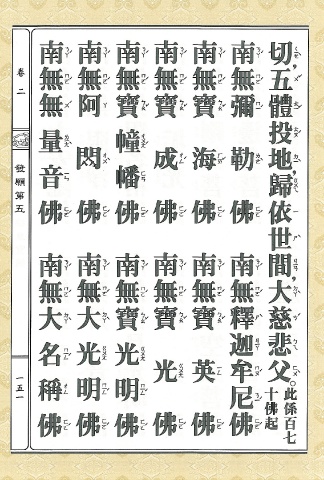 切，五體投地，歸依世間大慈悲父。此係百七十佛起
南無彌勒佛　南無釋迦牟尼佛
南無寶海佛　南無寶英佛
南無寶成佛　南無寶光佛
南無寶幢幡佛　南無寶光明佛
南無阿閦佛　南無大光明佛
南無無量音佛　南無大名稱佛
卷二　發願第五　一五一